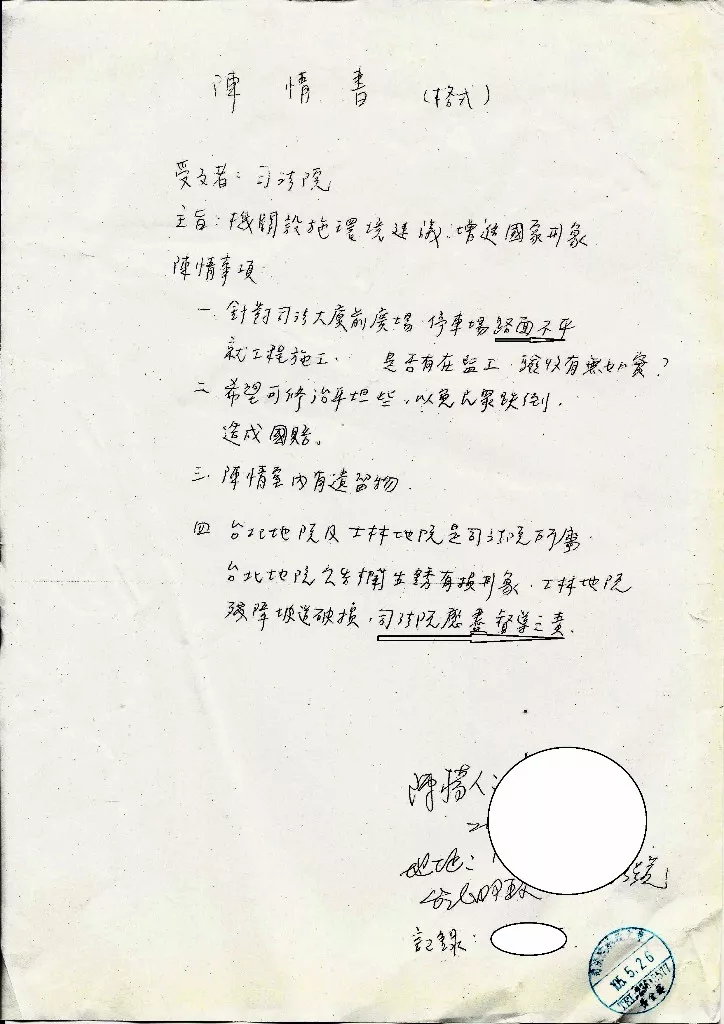 陳情書 (格式)
受文者：司法院
主旨：機關設施環境建議，增進國家形象
陳情事項：
一 針對司法大廈前廣場，停車場路面不平
就工程施工、 是否有在監工 驗收有無如實？
二 希望可修治平坦些，以免民眾跌倒，
造成國賠。
三 陳情室內有遺留物．
四 台北地院及士林地院是司法院所屬．
台北地院公告欄生銹有損形象．士林地院
殘障坡道破損，司法院應盡督導之責．
陳情人：
地址： 號
記錄：
105.5.26